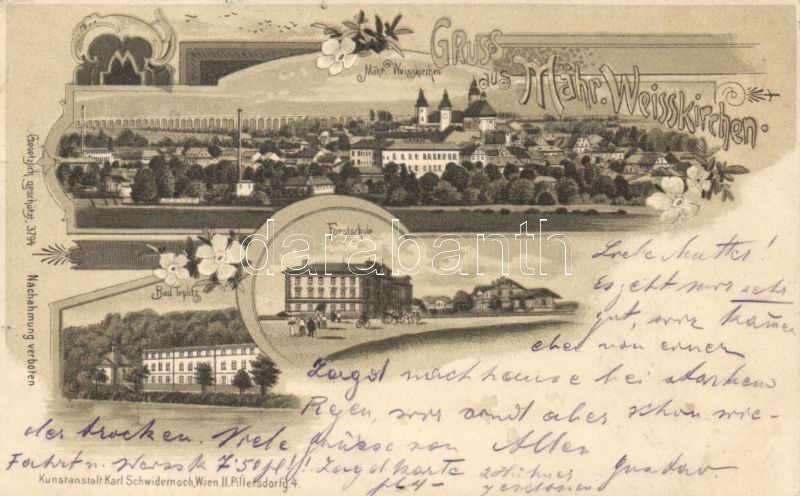 Gruss
aus Mähr. Weisskirchen.
Mähr. Weisskirchen
Forstschule
Bad Teplitz
Gesetzlich geschützt. 3794 Nachahmung verboten
darabanth
Liebe Mutter!
Es geht mir sehr
gut, wir kamen
eben von einer
Jagd nach hause bei starkem
Regen, wir sind aber schon wie-
der trocken. Viele Grüsse von Allen
Fahrt n. Weissk 7·50 fl!! Jagdkarte Gustav
fl 4 2 Hühner
geschossen
Kunstanstalt Karl Schwidernoch, Wien II. Pillersdorfg 4.